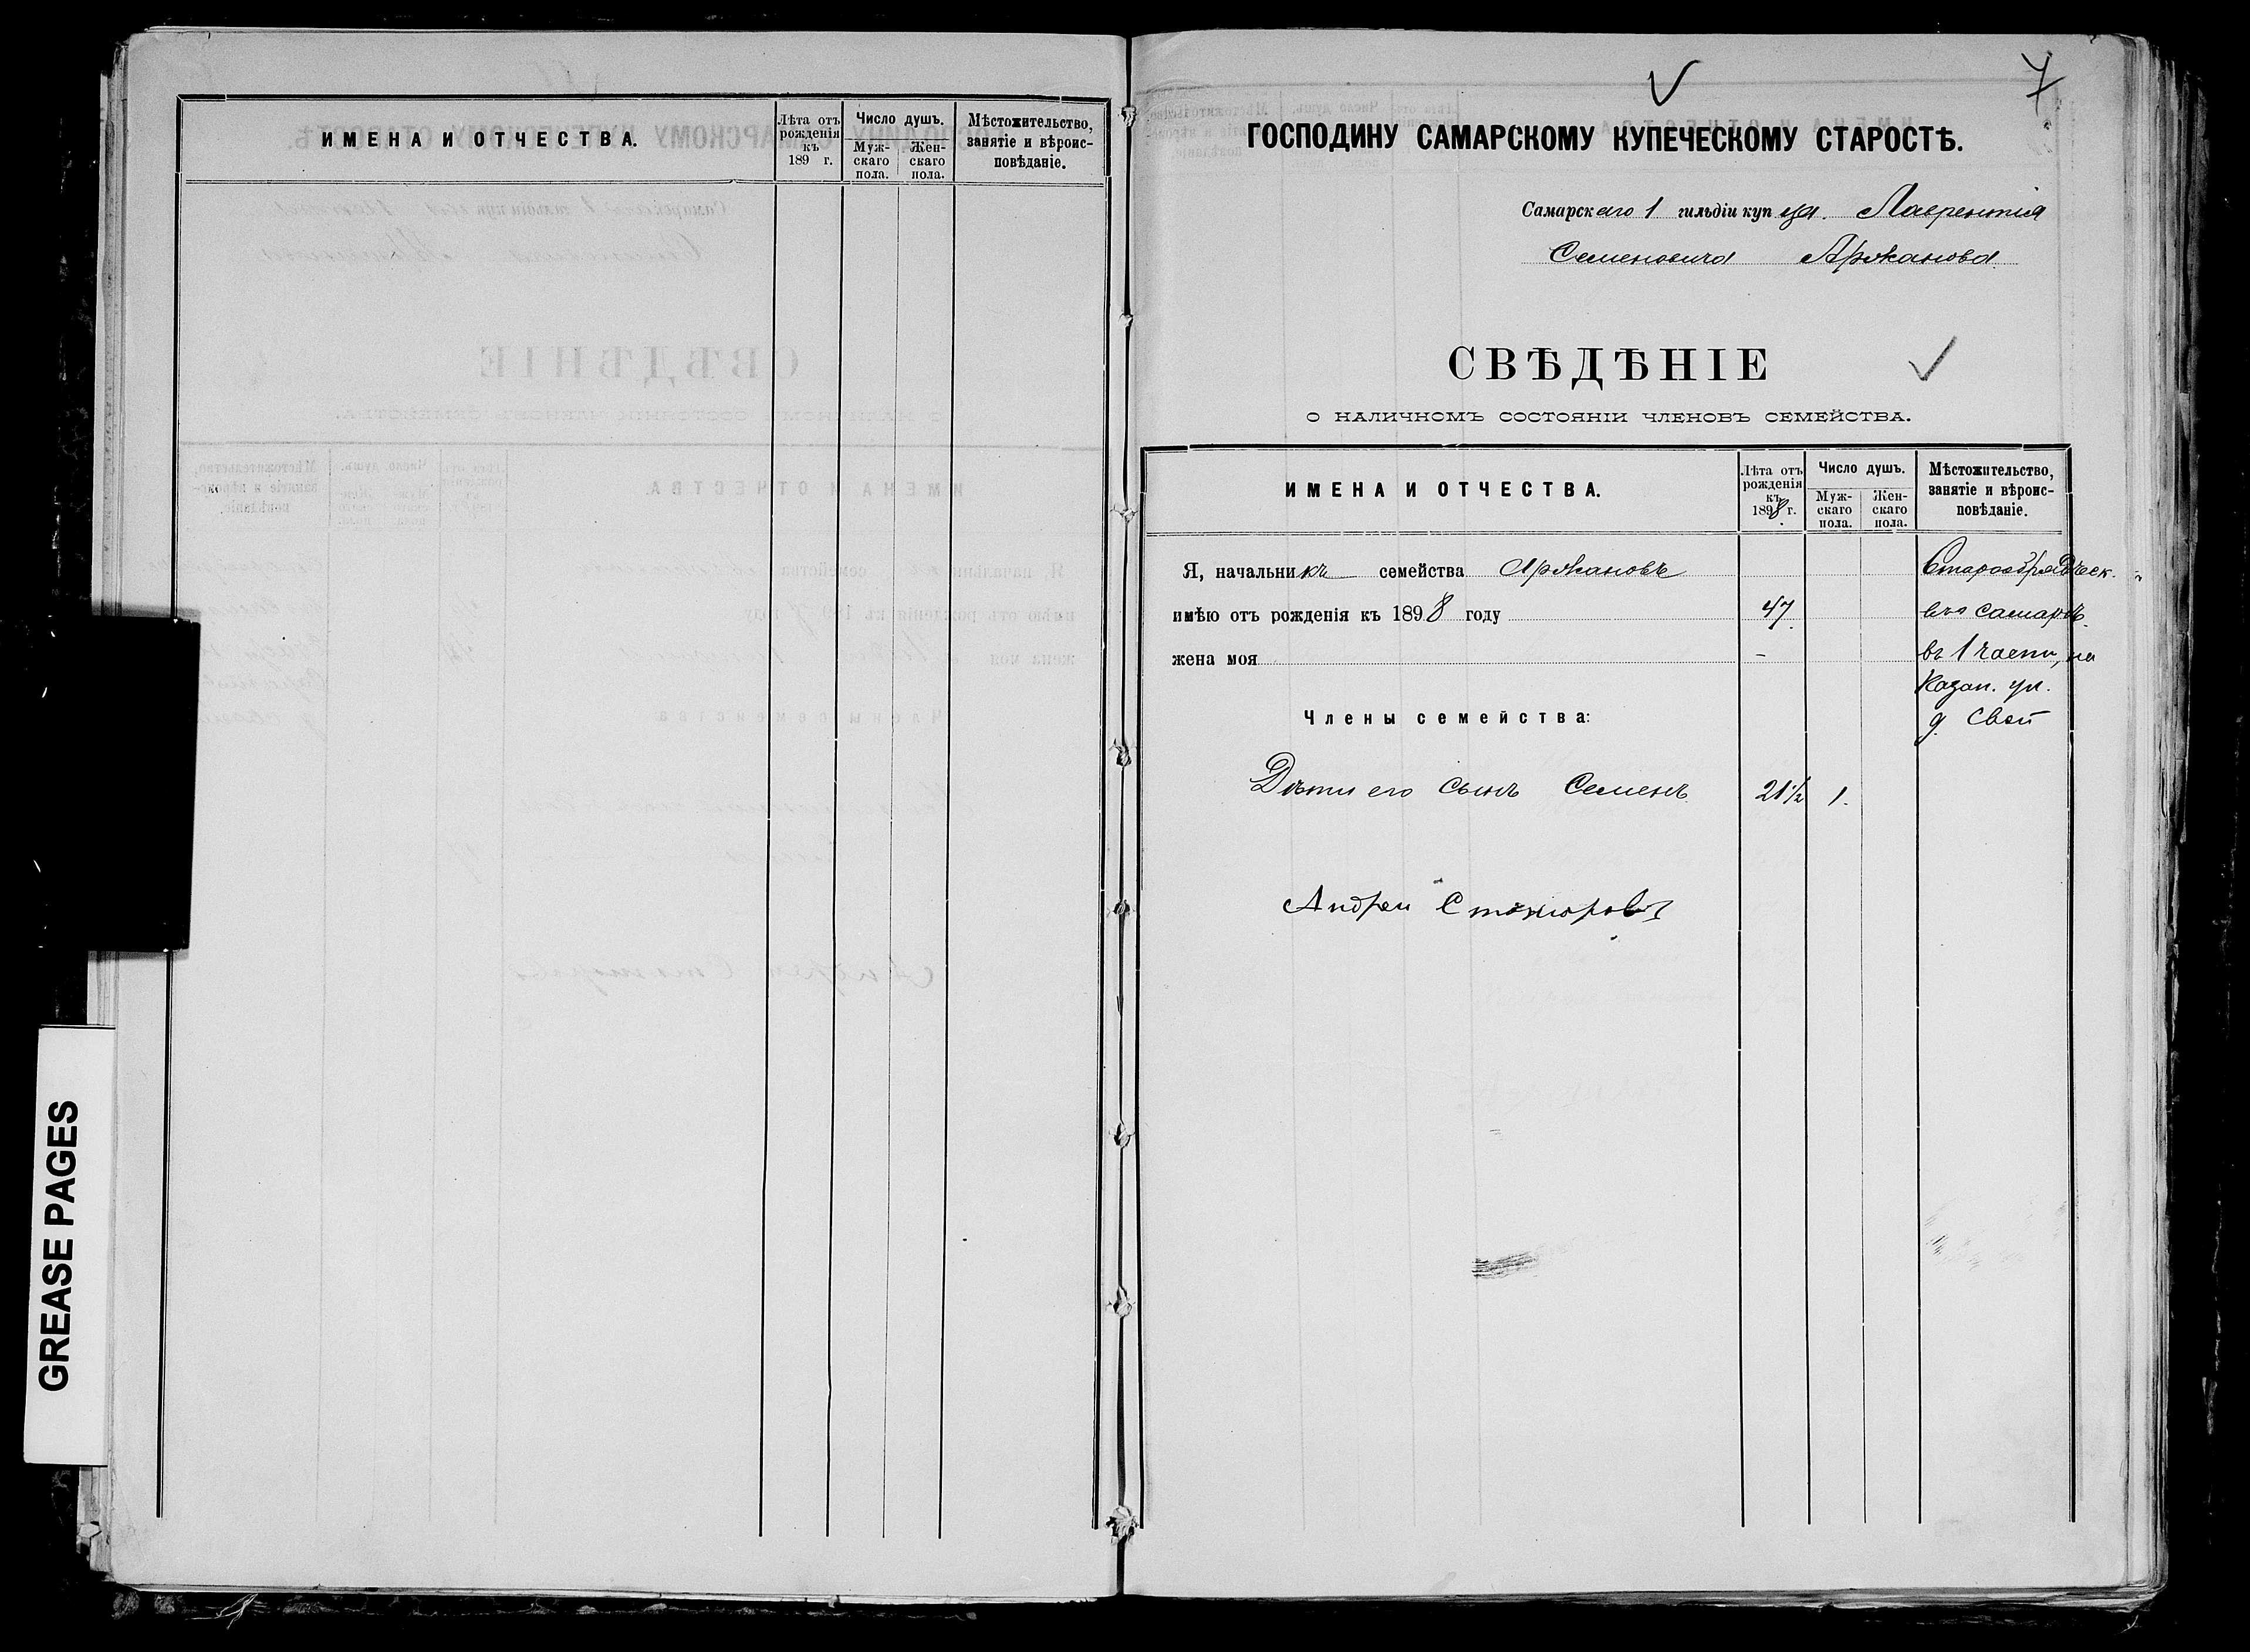 ИМЕНА И ОТЧЕСТВА.
Лѣта отъ рожденія къ 189 г.
Число душъ.
Мужскаго пола.
Женскаго пола.
Мѣстожительство, занятіе и вѣроисповѣданіе.
GREASE PAGES
7
ГОСПОДИНУ САМАРСКОМУ КУПЕЧЕСКОМУ СТАРОСТѢ.
Самарскаго 1 гильдіи купца. Лаврентія
Семеновича Аржанова
СВѢДѢНІЕ
О НАЛИЧНОМЪ СОСТОЯНІИ ЧЛЕНОВЪ СЕМЕЙСТВА.
ИМЕНА И ОТЧЕСТВА.
Лѣта отъ рожденія къ 1898 г.
Число душъ.
Мужскаго пола.
Женскаго пола.
Мѣстожительство, занятіе и вѣроисповѣданіе.
Я, начальникъ семейства Аржановъ Старообрядческ.
имѣю отъ рожденія къ 1898 году 47 въ Самарѣ
жена моя – въ 1 части, на
Казан. ул.
д. свой
Члены семейства:
Дѣти его сынъ Семенъ 21½ 1.
Андрей